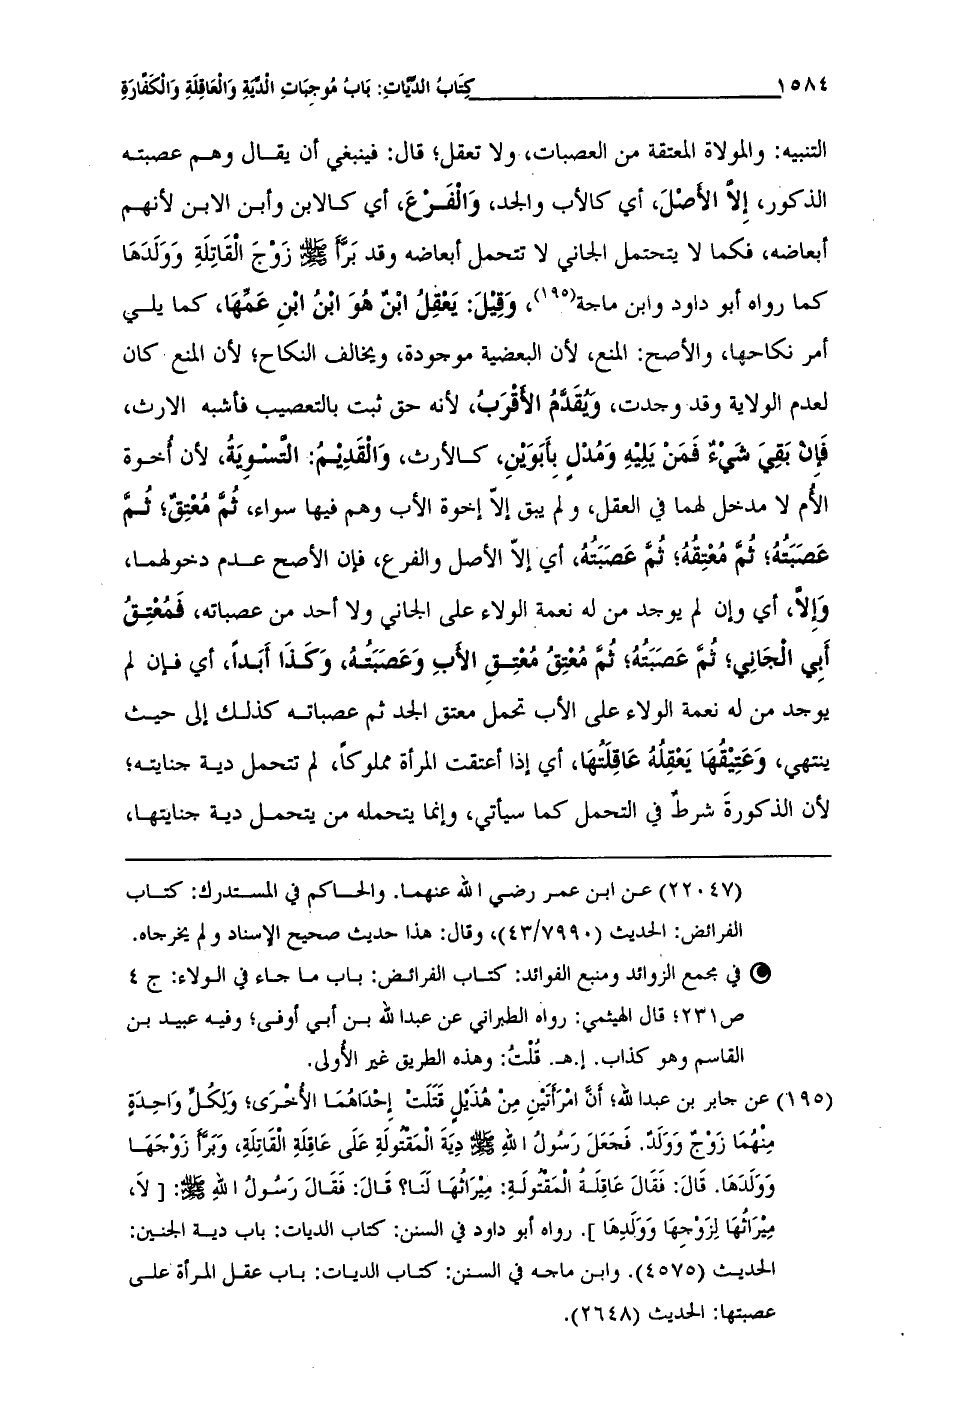 ١٥٨٤ كِتَابُ الدِّيَاتِ: بَابُ مُوجِبَاتِ الْدِّيَةِ وَالْعَاقِلَةِ وَالْكَفَّارَةِ
التنبيه: والمولاة المعتقة من العصبات، ولا تعقل؛ قال: فينبغي أن يقال وهم عصبته
الذكور، إِلاَّ الأَصْلَ، أي كالأب والجد، وَالْفَرْعَ، أي كالابن وأبن الابن لأنهم
أبعاضه، فكما لا يتحتمل الجاني لا تتحمل أبعاضه وقد بَرَّأَ ﷺ زَوْجَ الْقَاتِلَةِ وَوَلَدَهَا
كما رواه أبو داود وابن ماجة(١٩٥)، وَقِيْلَ: يَعْقِلُ ابْنٌ هُوَ ابْنُ ابْنِ عَمِّهَا، كما يلي
أمر نكاحها، والأصح: المنع، لأن البعضية موجودة، ويخالف النكاح؛ لأن المنع كان
لعدم الولاية وقد وجدت، وَيُقَدَّمُ الأَقْرَبُ، لأنه حق ثبت بالتعصيب فأشبه الارث،
فَإِنْ بَقِيَ شَيْءٌ فَمَنْ يَلِيْهِ وَمُدْلٍ بِأَبَوَيْنِ، كالأرث، وَالْقَدِيْمُ: التَّسْوِيَةُ، لأن أُخوة
الأُم لا مدخل لهما في العقل، ولم يبق إلاّ إخوة الأب وهم فيها سواء، ثُمَّ مُعْتِقٌ؛ ثُمَّ
عَصَبَتُهُ؛ ثُمَّ مُعْتِقُهُ؛ ثُمَّ عَصَبَتُهُ، أي إلاّ الأصل والفرع، فإن الأصح عدم دخولهما،
وَإِلاَّ، أي وإن لم يوجد من له نعمة الولاء على الجاني ولا أحد من عصباته، فَمُعْتِقُ
أَبِي الْجَانِي؛ ثُمَّ عَصَبَتُهُ؛ ثُمَّ مُعْتِقُ مُعْتِقِ الأَبِ وَعَصَبَتُهُ، وَكَذَا أَبَداً، أي فإن لم
يوجد من له نعمة الولاء على الأب تحمل معتق الجد ثم عصباته كذلك إلى حيث
ينتهي، وَعَتِيْقُهَا يَعْقِلُهُ عَاقِلَتُهَا، أي إذا أعتقت المرأة مملوكاً، لم تتحمل دية جنايته؛
لأن الذكورةَ شرطٌ في التحمل كما سيأتي، وإنما يتحمله من يتحمل دية جنايتها،
(٢٢٠٤٧) عن ابن عمر رضي الله عنهما. والحاكم في المستدرك: كتاب
الفرائض: الحديث (٤٣/٧٩٩٠)، وقال: هذا حديث صحيح الإسناد ولم يخرجاه.
في مجمع الزوائد ومنبع الفوائد: كتاب الفرائض: باب ما جاء في الولاء: ج ٤
ص٢٣١؛ قال الهيثمي: رواه الطبراني عن عبدالله بن أبي أوفى؛ وفيه عبيد بن
القاسم وهو كذاب. إ.هـ. قُلْتُ: وهذه الطريق غير الأُولى.
(١٩٥) عن جابر بن عبدالله؛ أَنَّ امْرَأَتَيْنِ مِنْ هُذَيْلٍ قَتَلَتْ إِحْدَاهُمَا الأُخْرَى؛ وَلِكُلِّ وَاحِدَةٍ
مِنْهُمَا زَوْجٌ وَوَلَدٌ. فَجَعَلَ رَسُولُ اللهِ ﷺ دِيَةَ الْمَقْتُولَةِ عَلَى عَاقِلَةِ الْقَاتِلَةِ، وَبَرَّأَ زَوْجَهَا
وَوَلَدَهَا. قَالَ: فَقَالَ عَاقِلَةُ الْمَقْتُولَةِ: مِيْرَاثُهَا لَنَا؟ قَالَ: فَقَالَ رَسُولُ اللهِ ﷺ: [ لاَ،
مِيْرَاثُهَا لِزَوْجِهَا وَوَلَدِهَا ]. رواه أبو داود في السنن: كتاب الديات: باب دية الجنين:
الحديث (٤٥٧٥). وابن ماجه في السنن: كتاب الديات: باب عقل المرأة على
عصبتها: الحديث (٢٦٤٨).